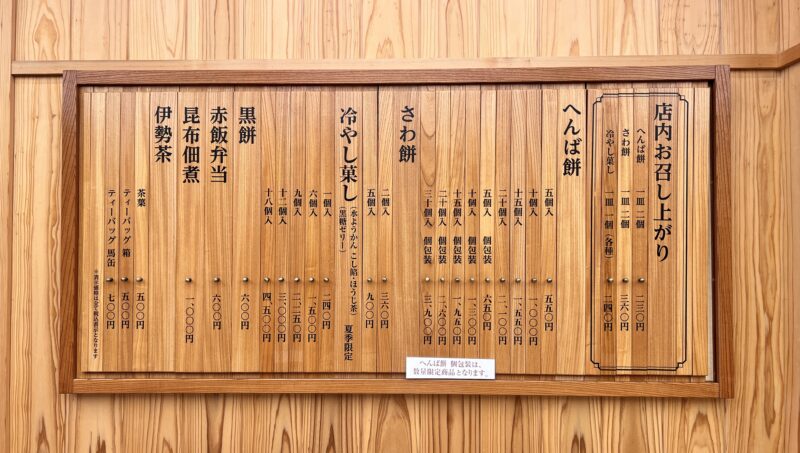 店内お召し上がり
へんば餅 一皿二個 二三〇円
さわ餅 一皿二個 三六〇円
冷やし菓し 一皿一個(各種) 二四〇円
へんば餅
五個入 五五〇円
十個入 一、〇〇〇円
十五個入 一、五五〇円
二十個入 二、一〇〇円
五個入 個包装 六五〇円
十個入 個包装 一、三〇〇円
十五個入 個包装 一、九五〇円
二十個入 個包装 二、六〇〇円
三十個入 個包装 三、九〇〇円
さわ餅
二個入 三六〇円
五個入 九〇〇円
冷やし菓し(水ようかん こし餡・ほうじ茶)(黒糖ゼリー) 夏季限定
一個入 二四〇円
六個入 一、五〇〇円
九個入 二、二五〇円
十二個入 三、〇〇〇円
十八個入 四、五〇〇円
黒餅 六〇〇円
赤飯弁当 六〇〇円
昆布佃煮 一、〇〇〇円
伊勢茶
茶葉 五〇〇円
ティーバッグ 箱 五〇〇円
ティーバッグ 馬缶 七〇〇円
※表示価格は全て税込表示となります
へんば餅 個包装は、
数量限定商品となります。